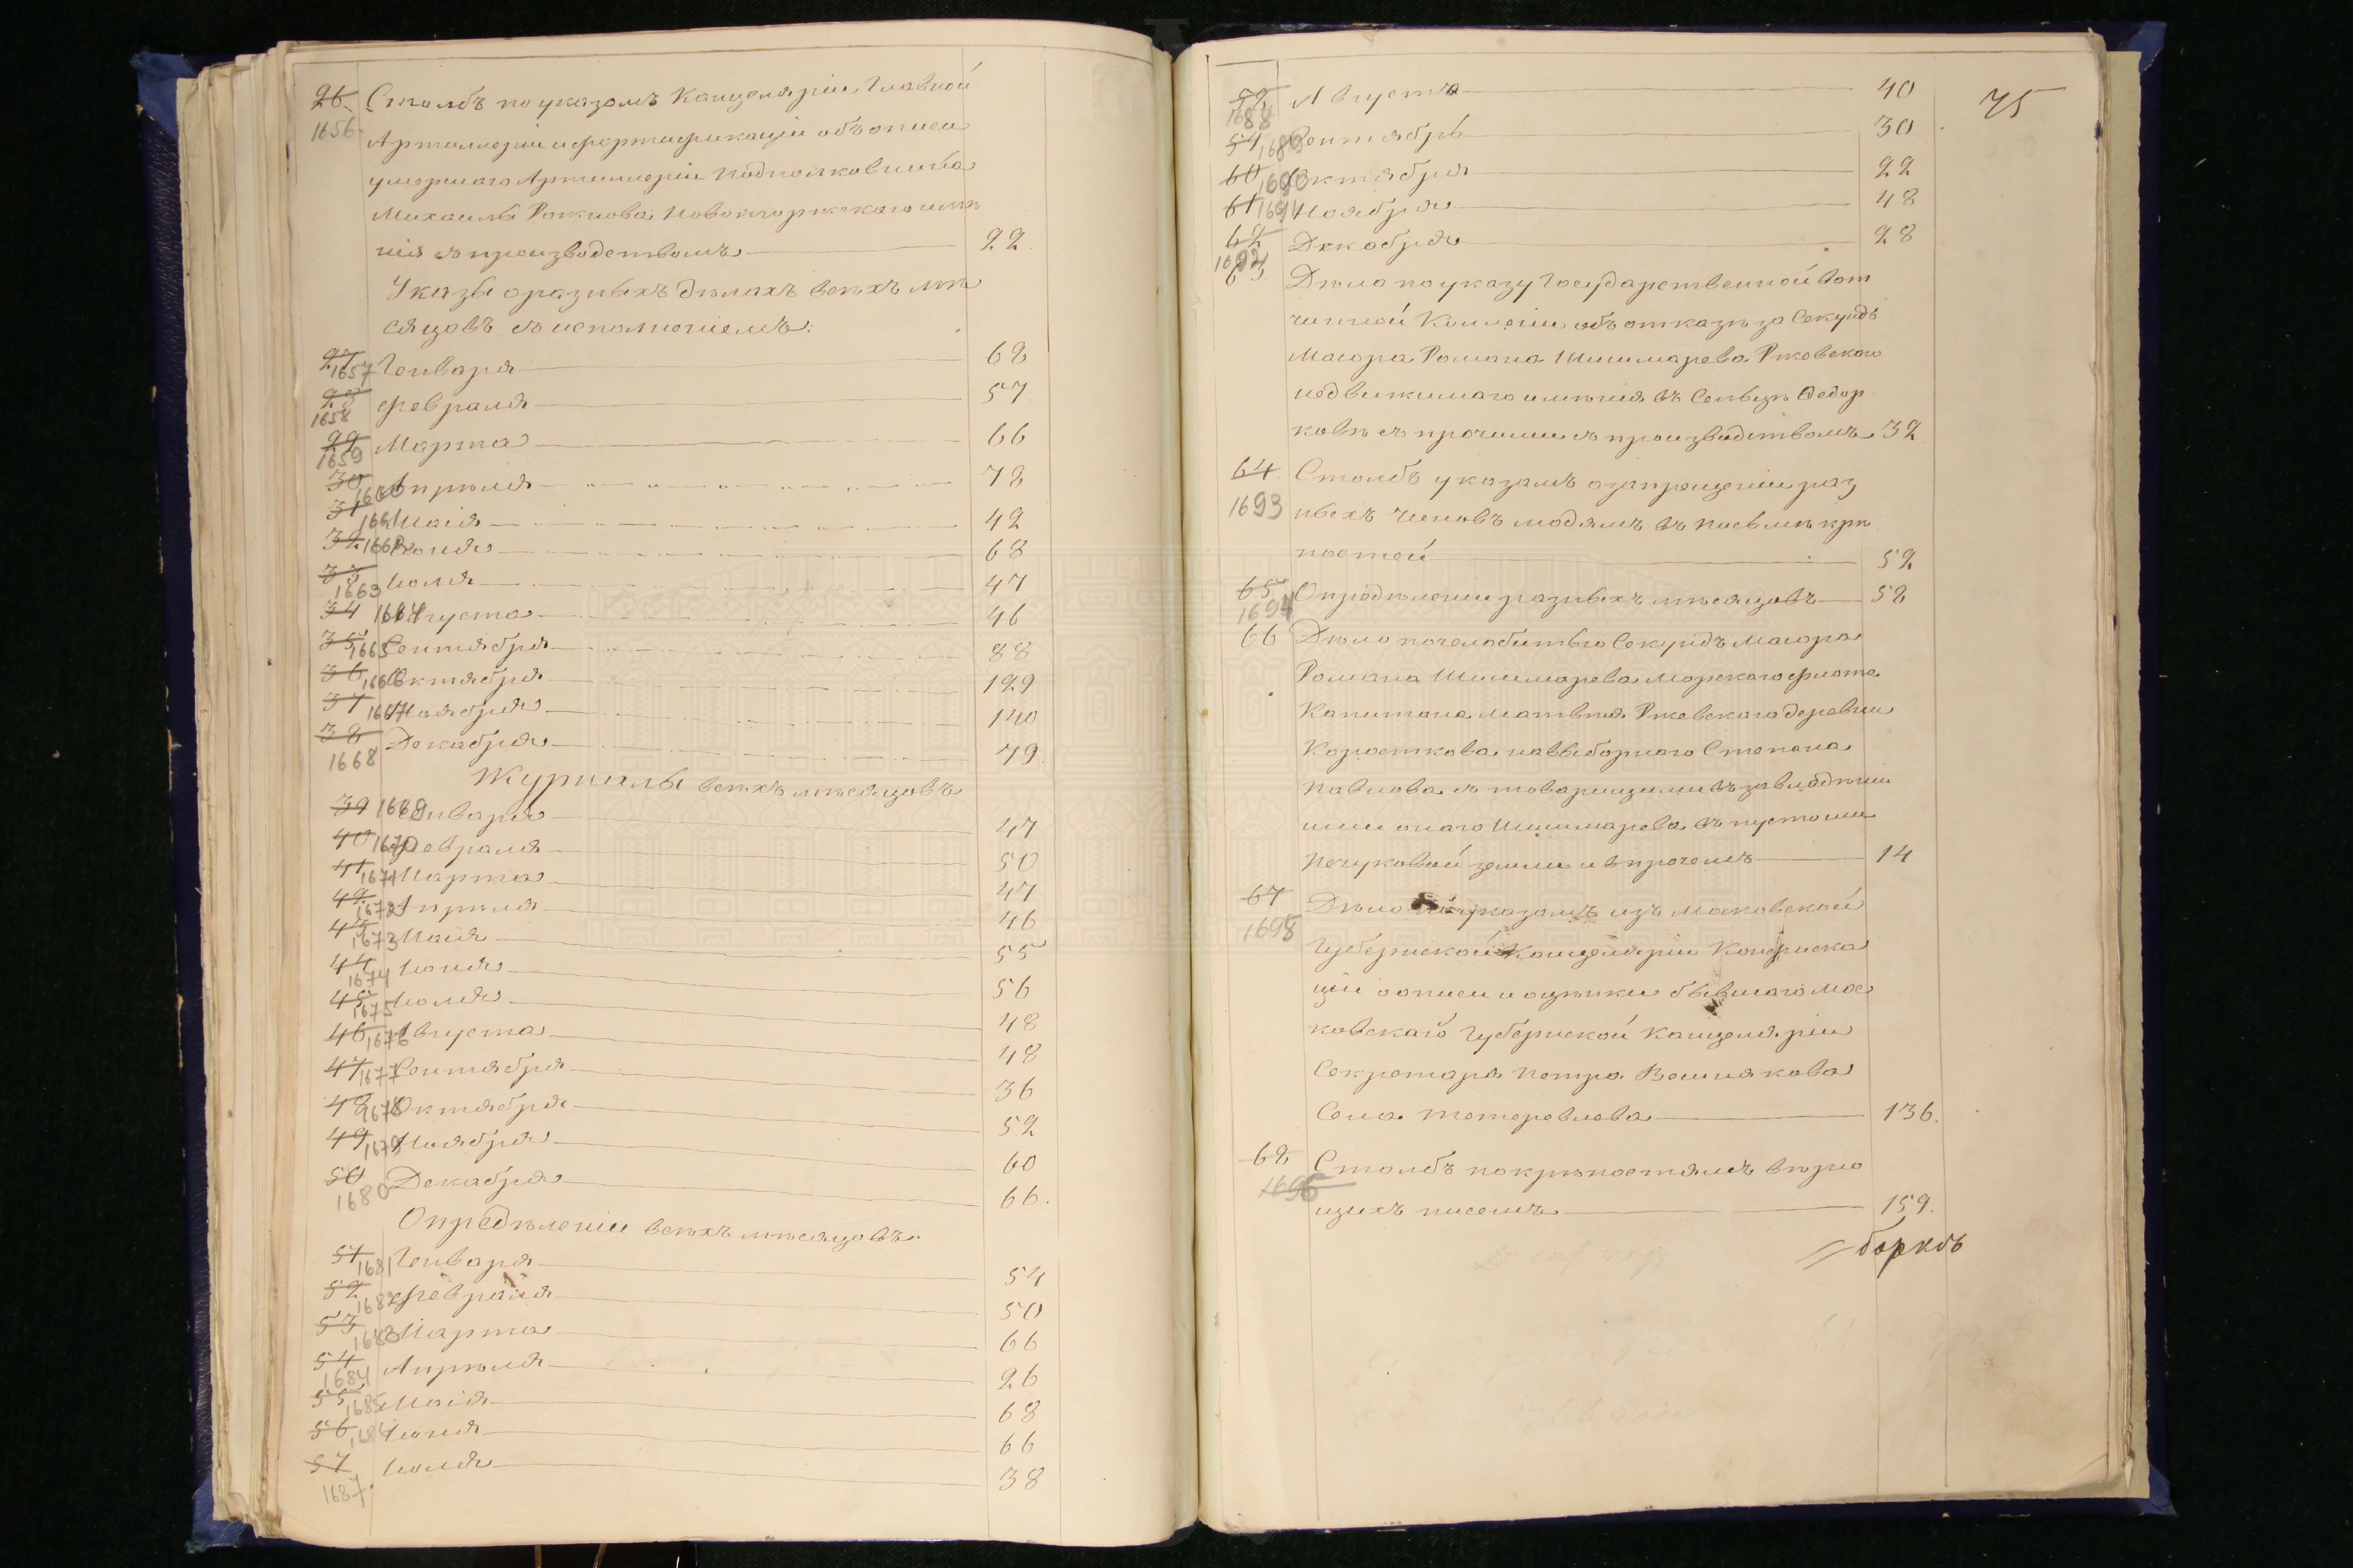 26 Столбъ по указомъ Канцеляріи Главной
1656 Артиллеріи и фортификаціи объ описи
умершаго Артиллеріи Подполковника
Михаилы Рокнова Новоторжскаго имѣ
нія съ производствомъ 22.
Указы о разныхъ дѣлахъ всѣхъ мѣ
сяцовъ съ исполненіемъ.
27 1657 Генваря 68
28 1658 Февраля 57
29 1659 Марта 66
30 1660 Апрѣля 78
31 1661 Маія 42
32 1662 Іюня 68
33 1663 Іюля 47
34 1664 Августа 46
35 1665 Сентября 88
36 1666 Октября 129
37 1667 Ноября 140
38 1668 Декабря 79
Журналы всѣхъ мѣсяцовъ
39 1669 Генваря 47
40 1670 Февраля 50
41 1671 Марта 47
42 1672 Апрѣля 46
43 1673 Маія 55
44 1674 Іюня 56
45 1675 Іюля 48
46 1676 Августа 48
47 1677 Сентября 36
48 1678 Октября 52
49 1679 Ноября 60
50 1680 Декабря 66.
Опредѣленіи всѣхъ мѣсяцовъ.
51 1681 Генваря 54
52 1682 Февраля 50
53 1683 Марта 66
54 1684 Апрѣля 26
55 1685 Маія 68
56 1686 Іюня 66
57 1687 Іюля 38
75
58 1688 Августа 40
59 1689 Сентября 30
60 1690 Октября 22
61 1691 Ноября 48
62 1692 Декабря 28
63 Дѣло по указу Государственной Вот
чинной Коллегіи объ отказѣ за Секундъ
Маіора Романа Шишмарева Ржевскаго
недвижимаго имѣнія въ Сельцѣ Федор
ковѣ съ прочими съ производствомъ 32
64 Столбъ указамъ о запрещеніи раз
1693 ныхъ чиновъ людямъ въ письмѣ крѣ
постей 52
65 1694 Опредѣленіи разныхъ мѣсяцовъ 58
66 Дѣло по челобитью Секундъ Маіора
Романа Шишмарева Морскаго флота
Капитана Матвѣя Ржевскаго деревни
Коросткова на выборнаго Степана
Павлова съ товарищими въ завладѣніи
ими онаго Шишмарева въ пустоши
Печуковой земли и в прочемъ 14
67 Дѣло по указамъ изъ Московской
1695 Губернской Канцеляріи Конфиска
ціи о описи и оцѣнки бывшаго Мос
ковскаго Губернской Канцеляріи
Секретаря Петра Вешнякова
Села 136.
68 Столбъ по крѣпостямъ вѣрю
1696 щихъ писемъ 159.